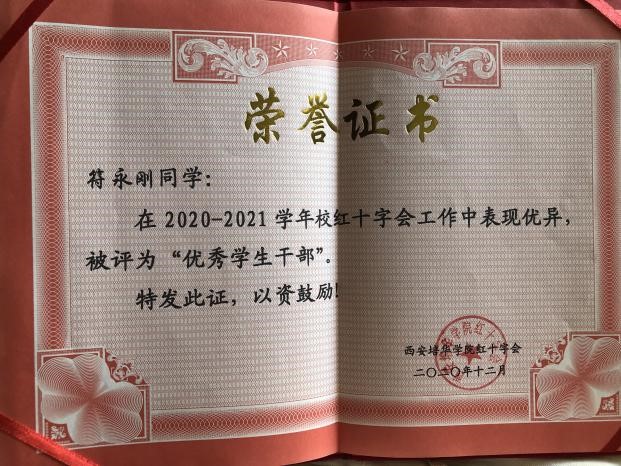 荣誉证书
符永刚同学：
在2020-2021学年校红十字会工作中表现优异，
被评为“优秀学生干部”。
特发此证，以资鼓励！
西安培华学院红十字会
二〇二〇年十二月